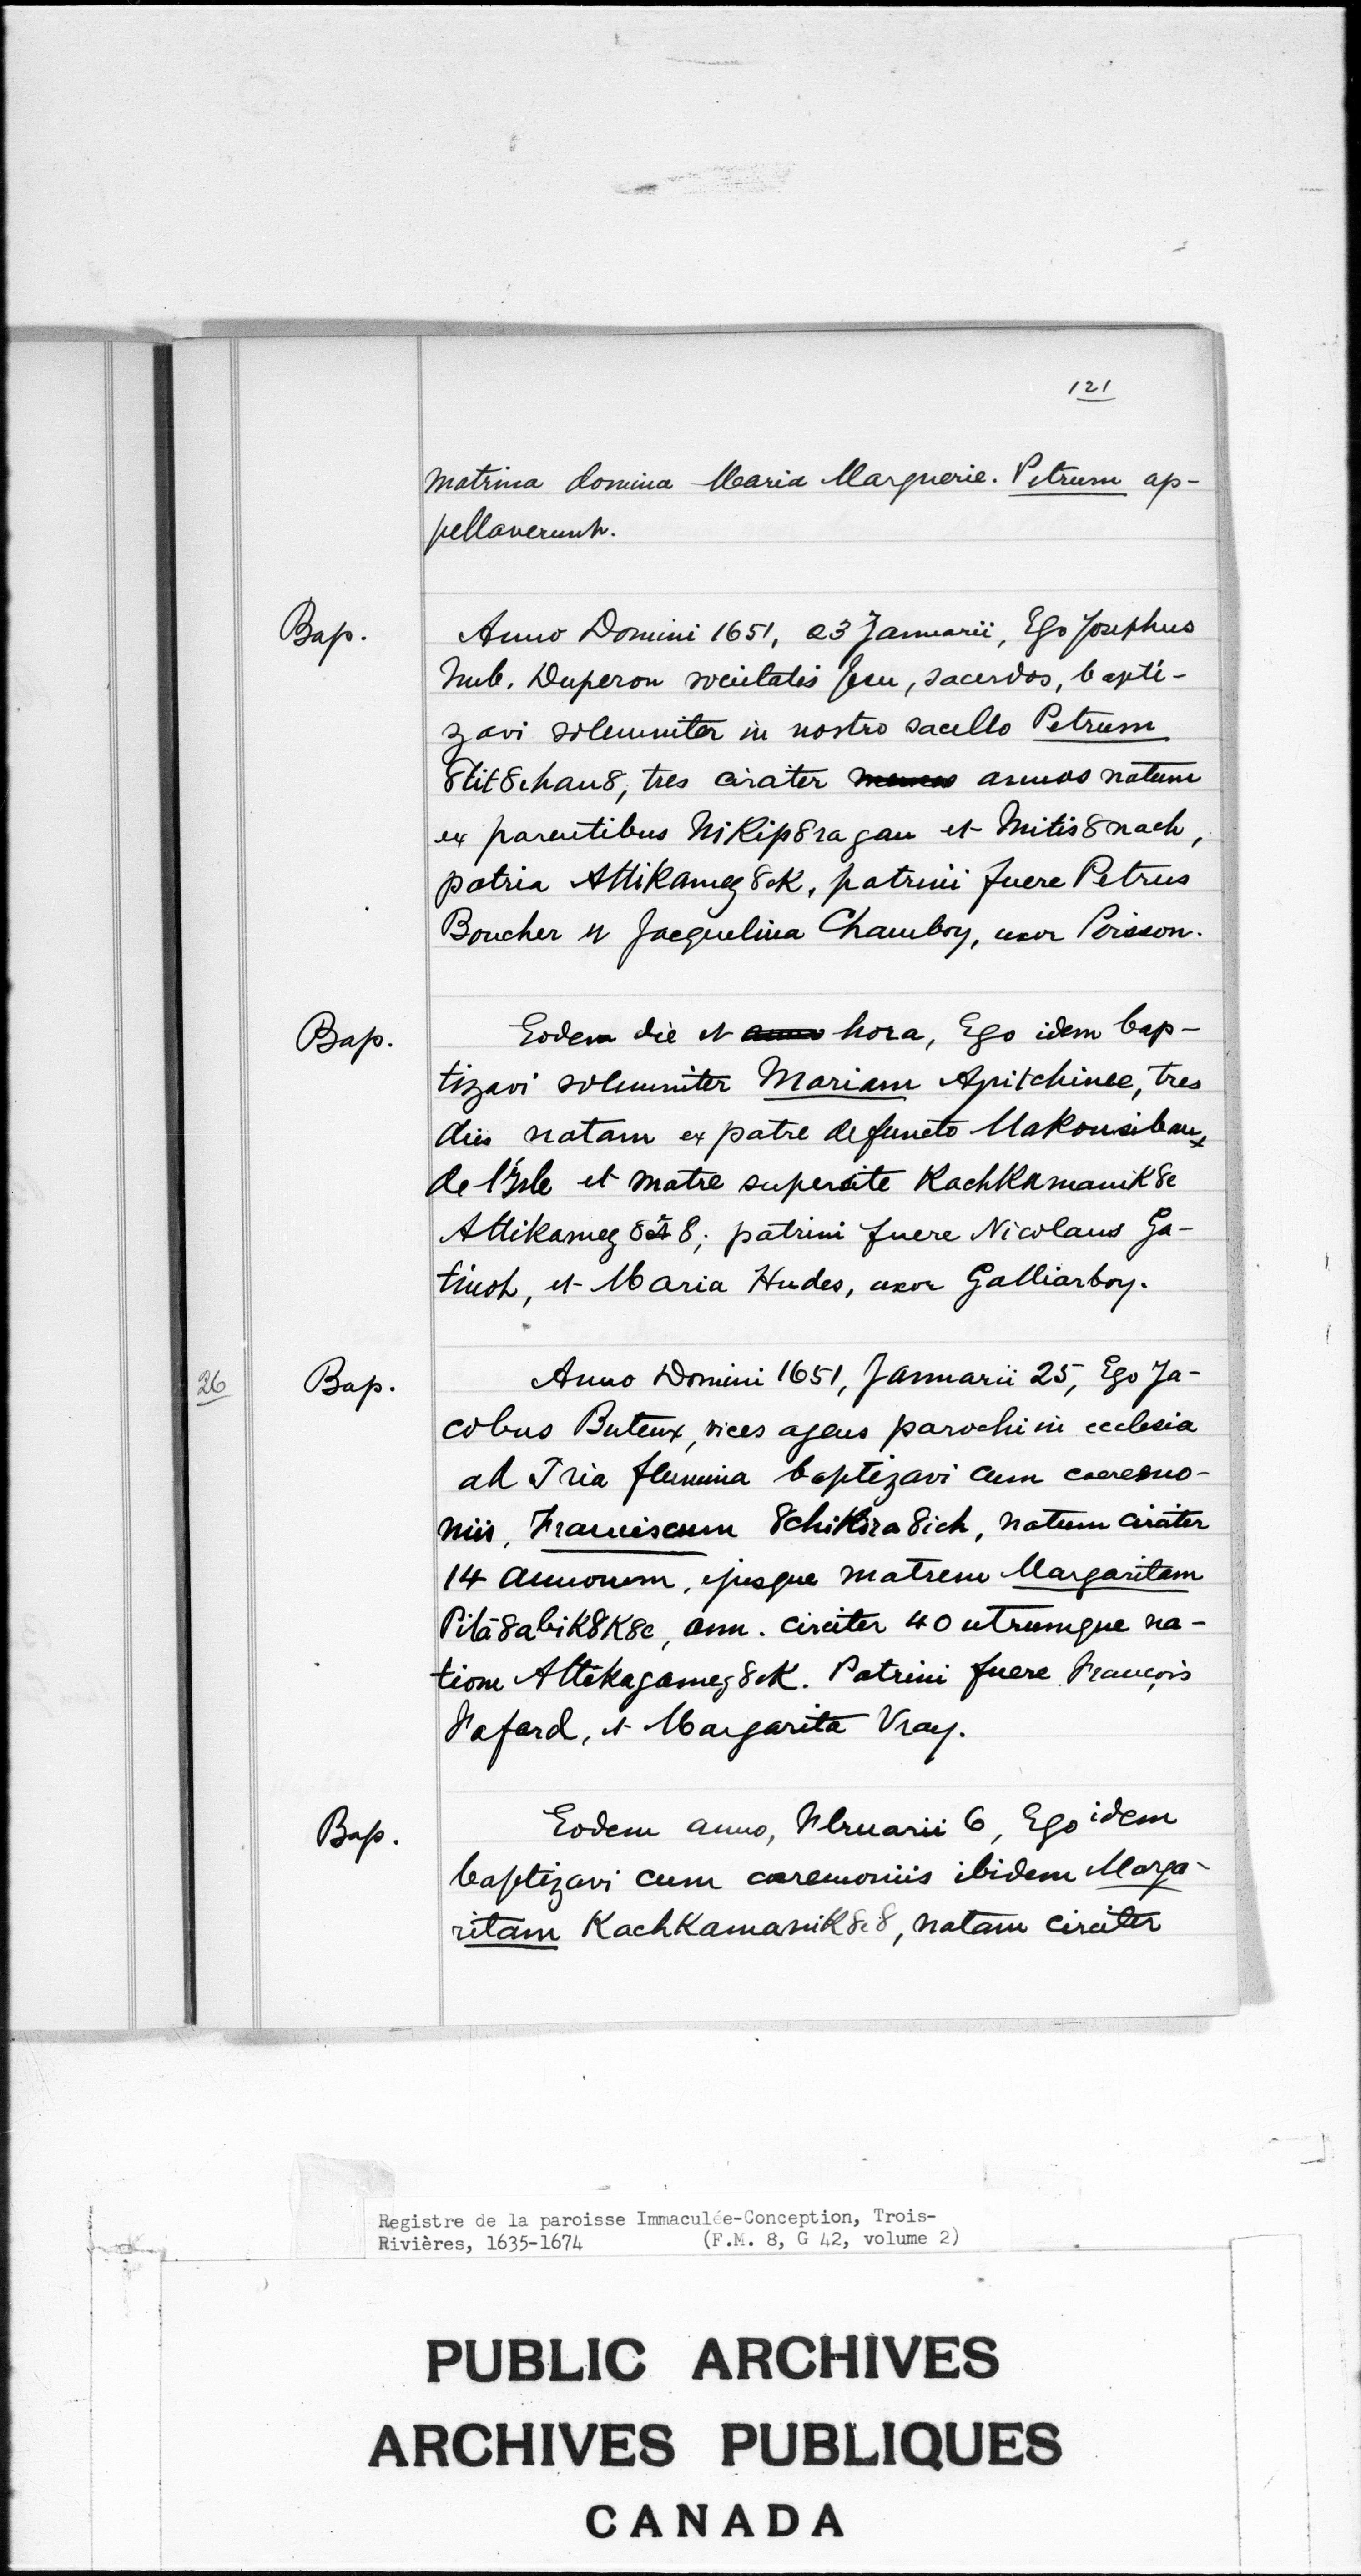 121
matrina domina Maria Marguerie. Petrum ap-
pellaverunt.
Bap. Anno Domini 1651, 23 Januarii, Ego Josephus
Imb. Duperon societatis Jesu, sacerdos, bapti-
zavi solemniter in nostro sacello Petrum
8tit8chau8, tres circiter menses annos natum
ex parentibus Nikip8ragan et Mitis8nach,
patria Attikameg8ek, patrini fuere Petrus
Boucher et Jacquelina Chamboy, uxor Poisson.
Bap. Eodem die et anno hora, Ego idem bap-
tizavi solemniter Mariam Apitchinee, tres
dies natam ex patre defuncto Makousibaux
de l'Isle et matre superstite Kachkamanik8e
Attikameg8 8; patrini fuere Nicolaus Ga-
tinot, et Maria Hudes, uxor Galliarboy.
26 Bap. Anno Domini 1651, Januarii 25, Ego Ja-
cobus Buteux, vices agens parochi in ecclesia
ad Tria flumina baptizavi cum caeremo-
niis, Franciscum 8chikira8ich, natum circiter
14 annorum, ejusque matrem Margaritam
Pitā8abik8k8e, ann. circiter 40 utrumque na-
tione Attekagameg8ek. Patrini fuere François
Fafard, et Margarita Vray.
Bap. Eodem anno, Februarii 6, Ego idem
baptizavi cum caeremoniis ibidem Marga-
ritam Kachkamanik8e8, natam circiter
Registre de la paroisse Immaculée-Conception, Trois-
Rivières, 1635-1674 (F.M. 8, G 42, volume 2)
PUBLIC ARCHIVES
ARCHIVES PUBLIQUES
CANADA